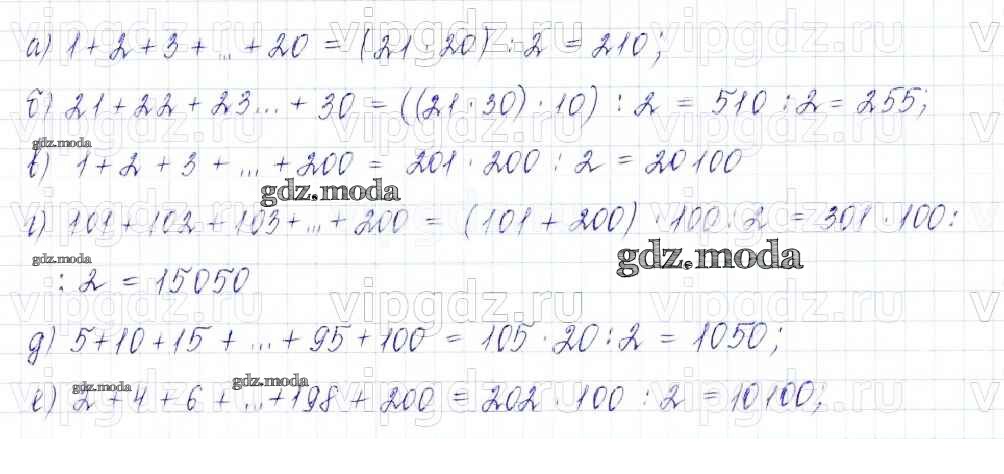 а) 1 + 2 + 3 + ... + 20 = (21 · 20) : 2 = 210;
б) 21 + 22 + 23... + 30 = ((21 · 30) · 10) : 2 = 510 : 2 = 255;
gdz.moda
в) 1 + 2 + 3 + ... + 200 = 201 · 200 : 2 = 20100
gdz.moda
г) 101 + 102 + 103 + ... + 200 = (101 + 200) · 100 : 2 = 301 · 100 :
gdz.moda
gdz.moda
: 2 = 15050
vipgdz.ru vipgdz.ru vipgdz.ru
д) 5 + 10 + 15 + ... + 95 + 100 = 105 · 20 : 2 = 1050;
gdz.moda
gdz.moda
е) 2 + 4 + 6 + ... + 198 + 200 = 202 · 100 : 2 = 10100;